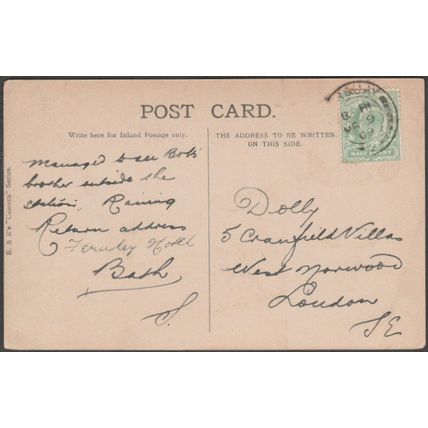 POST CARD.
Write here for Inland Postage only.
THE ADDRESS TO BE WRITTEN
ON THIS SIDE.
B. & R's. "Camera" Series.
Managed to see Bob's
brother outside the
station. Raining
Return address
Fernley Hotel
Bath
S.
Dolly
5 Cranfield Villas
West Norwood
London
SE
HALFPENNY